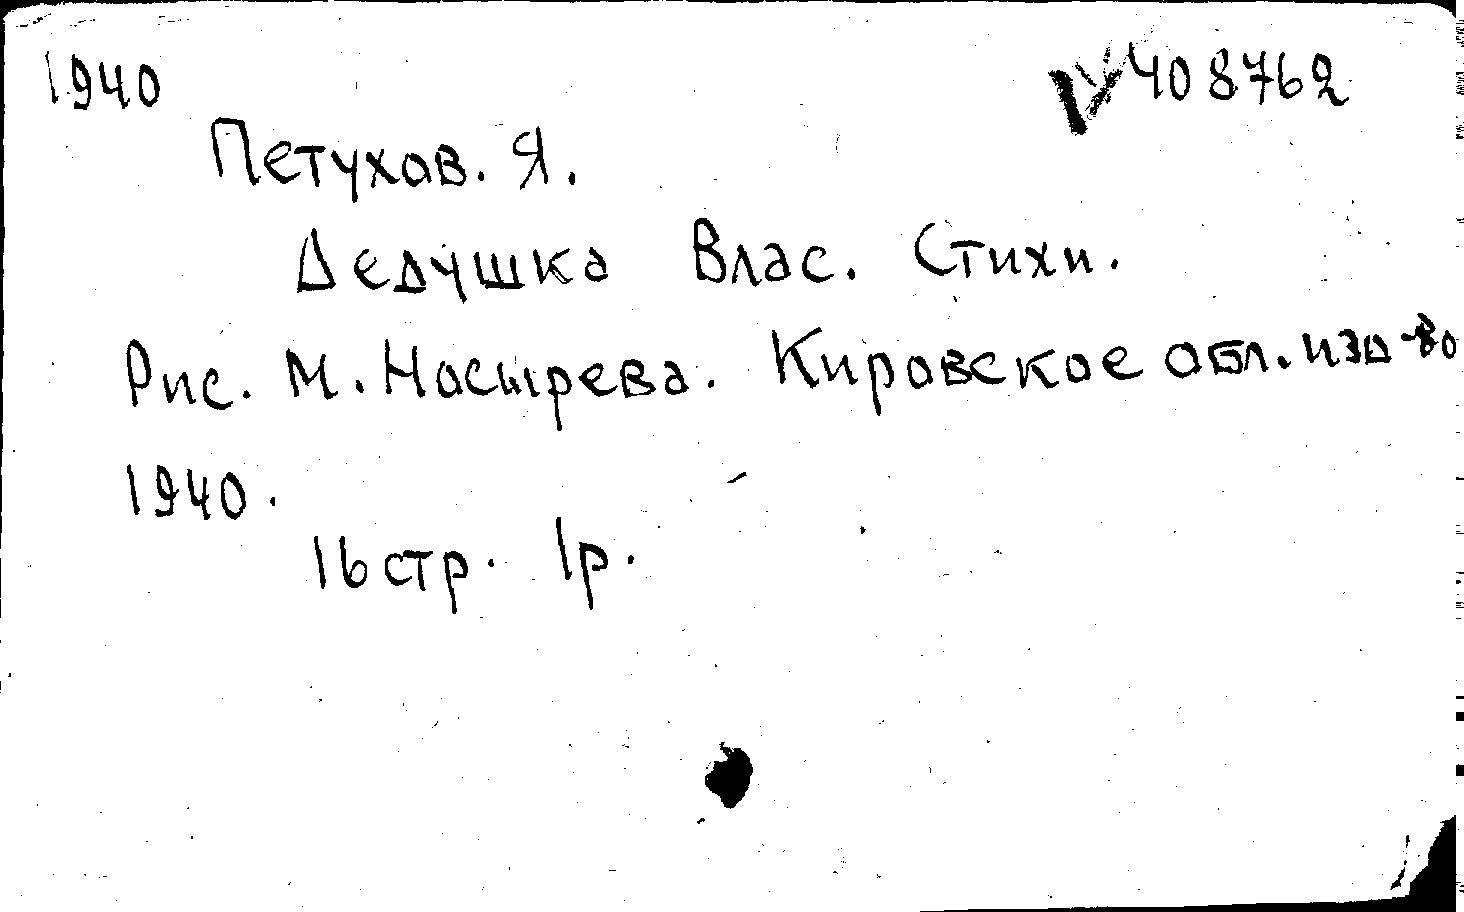 1940 V 408762
Петухов. Я.
Дедушка Влас. Стихи.
Рис. М. Носырева. Кировское обл. изд-во
1940.
16 стр. 1р.